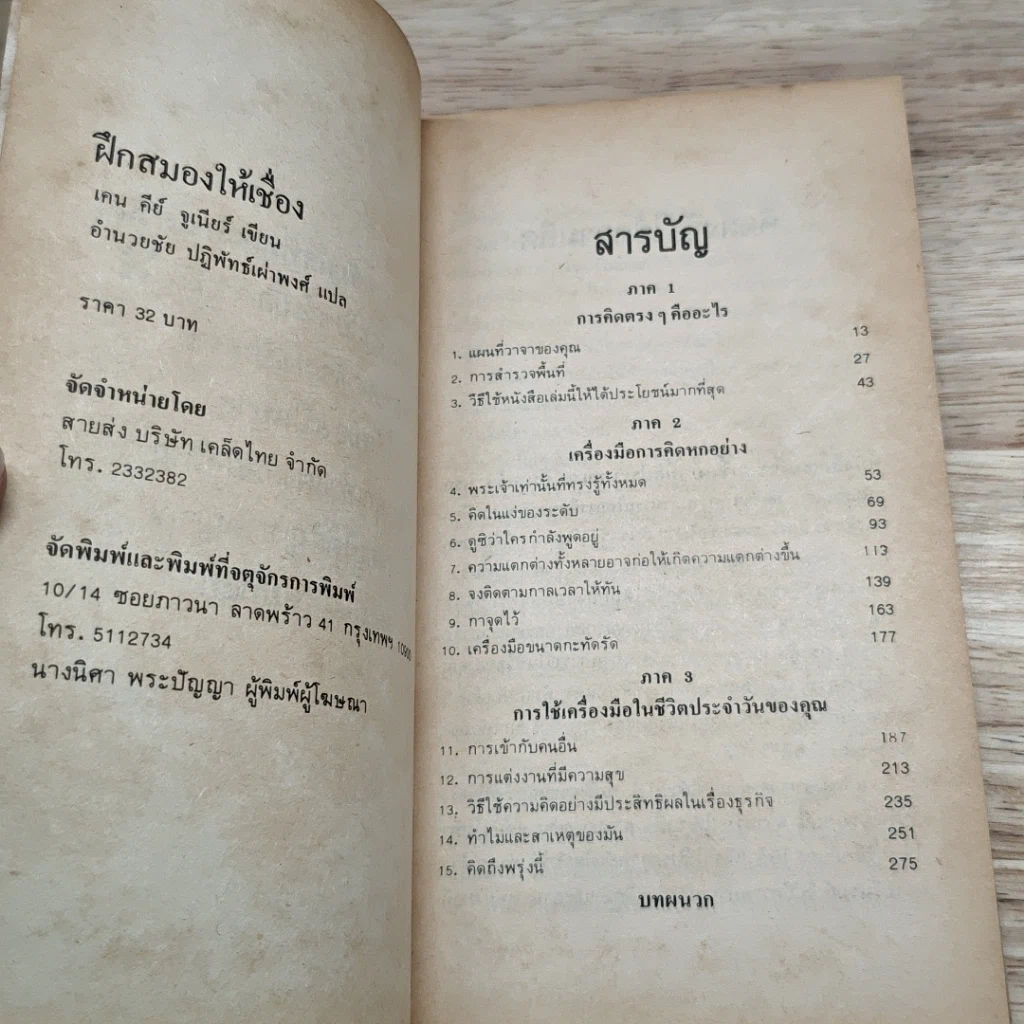 ฝึกสมองให้เชื่อง
เคน คีย์ จูเนียร์ เขียน
อำนวยชัย ปฏิพัทธ์เผ่าพงศ์ แปล
ราคา 32 บาท
จัดจำหน่ายโดย
สายส่ง บริษัท เคล็ดไทย จำกัด
โทร. 2332382
จัดพิมพ์และพิมพ์ที่จตุจักรการพิมพ์
10/14 ซอยภาวนา ลาดพร้าว 41 กรุงเทพฯ 10900
โทร. 5112734
นางนิศา พระปัญญา ผู้พิมพ์ผู้โฆษณา
สารบัญ
ภาค 1
การคิดตรง ๆ คืออะไร
1. แผนที่วาจาของคุณ 13
2. การสำรวจพื้นที่ 27
3. วิธีใช้หนังสือเล่มนี้ให้ได้ประโยชน์มากที่สุด 43
ภาค 2
เครื่องมือการคิดหกอย่าง
4. พระเจ้าเท่านั้นที่ทรงรู้ทั้งหมด 53
5. คิดในแง่ของระดับ 69
6. ดูซิว่าใครกำลังพูดอยู่ 93
7. ความแตกต่างทั้งหลายอาจก่อให้เกิดความแตกต่างขึ้น 113
8. จงติดตามกาลเวลาให้ทัน 139
9. กาจุดไว้ 163
10. เครื่องมือขนาดกะทัดรัด 177
ภาค 3
การใช้เครื่องมือในชีวิตประจำวันของคุณ
11. การเข้ากับคนอื่น 187
12. การแต่งงานที่มีความสุข 213
13. วิธีใช้ความคิดอย่างมีประสิทธิผลในเรื่องธุรกิจ 235
14. ทำไมและสาเหตุของมัน 251
15. คิดถึงพรุ่งนี้ 275
บทผนวก